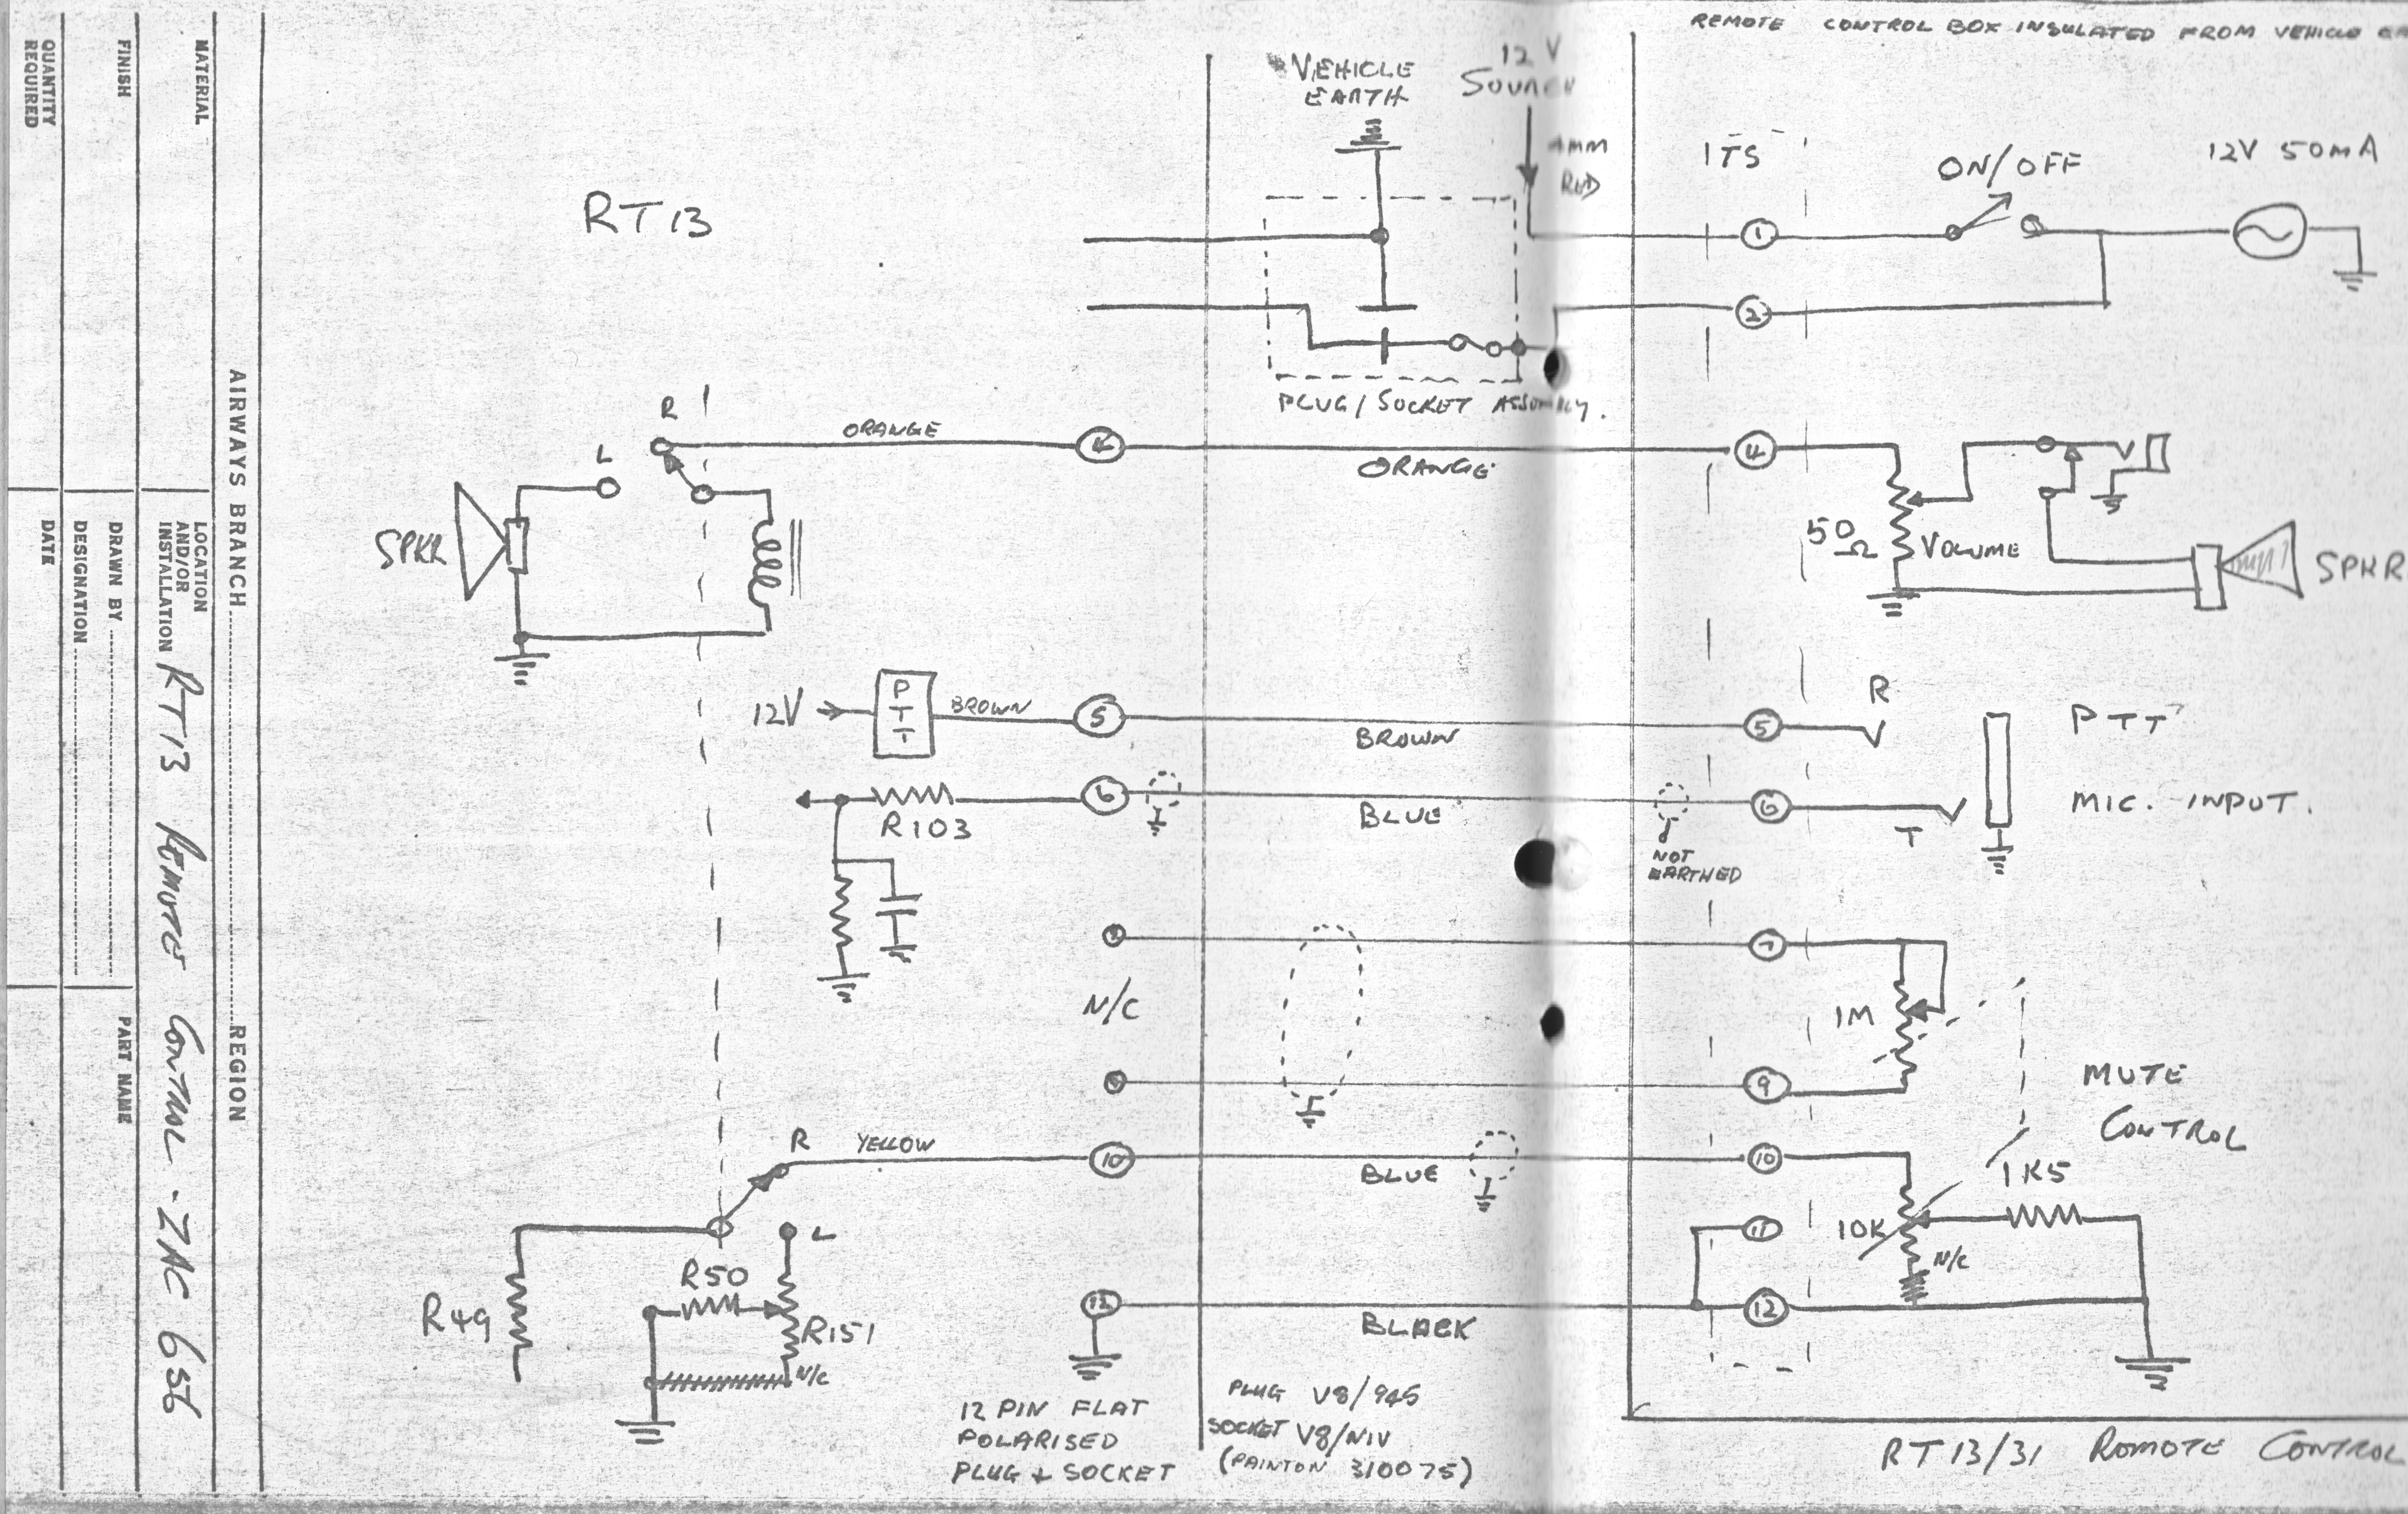 REMOTE CONTROL BOX INSULATED FROM VEHICLE
QUANTITY REQUIRED
FINISH
MATERIAL
DATE
DESIGNATION
DRAWN BY
LOCATION AND/OR INSTALLATION RT13 REMOTE CONTROL - ZAC 656
PART NAME
AIRWAYS BRANCH REGION
RT13
VEHICLE
EARTH
12 V
SOURCE
4MM
RED
PLUG/SOCKET ASSEMBLY.
TS
ON/OFF
12V 50mA
1
2
R
L
ORANGE
4
ORANGE
4
SPKR
50
Ω
VOLUME
SPKR
12V
PTT
BROWN
5
BROWN
5
R
PTT
R103
6
BLUE
6
T
MIC. INPUT.
NOT
EARTHED
N/C
7
9
1M
MUTE
CONTROL
R
YELLOW
10
BLUE
10
1K5
L
R49
R50
R151
N/C
11
10K
N/C
12
BLACK
12
12 PIN FLAT
POLARISED
PLUG & SOCKET
PLUG V8/945
SOCKET V8/NIV
(PAINTON 310075)
RT13/31 REMOTE CONTROL